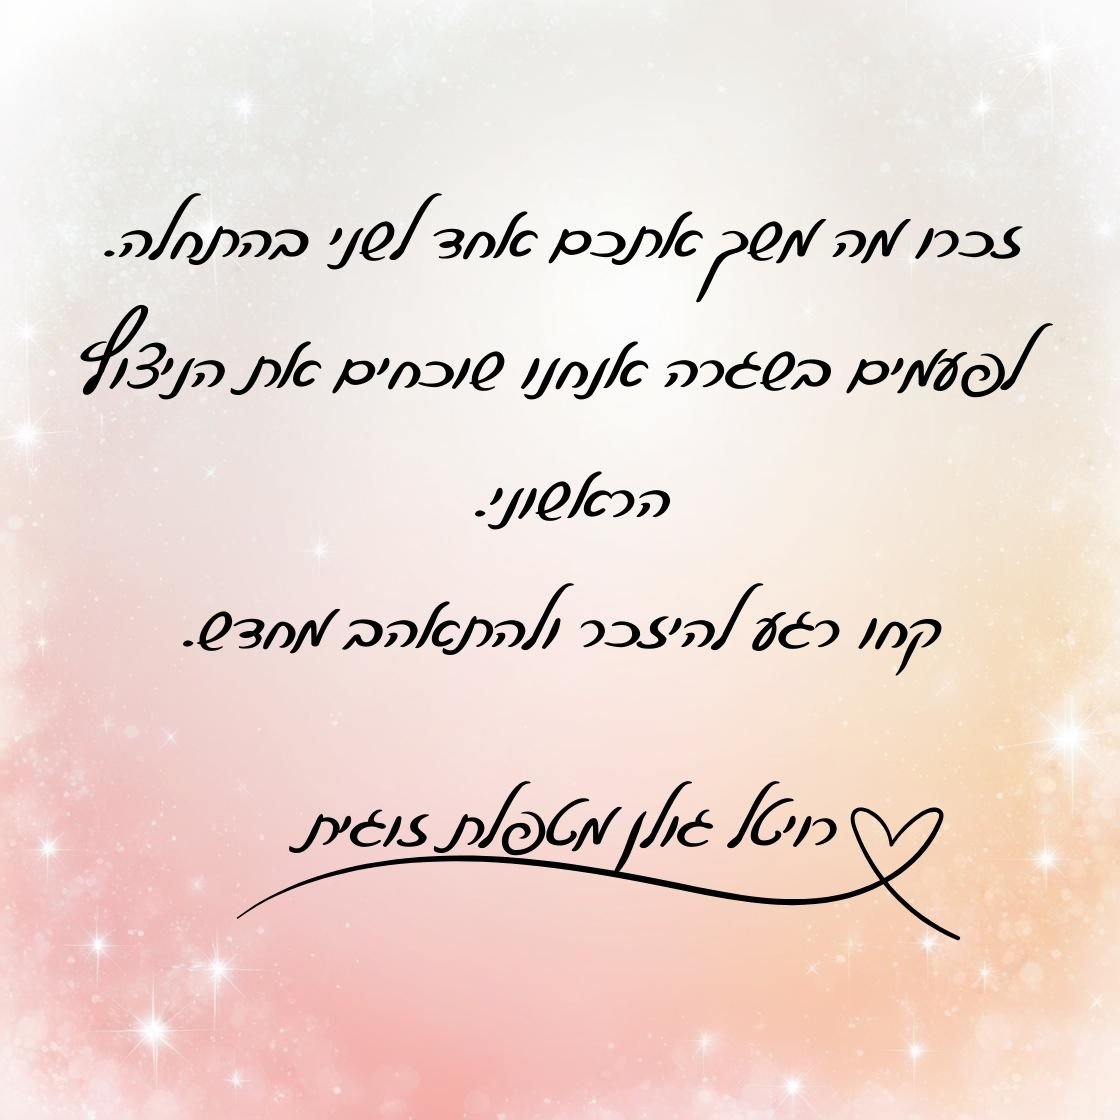 זכרו מה משך אתכם אחד לשני בהתחלה.
לפעמים בשגרה אנחנו שוכחים את הניצוץ
הראשוני.
קחו רגע להיזכר ולהתאהב מחדש.
רויטל גולן מטפלת זוגית